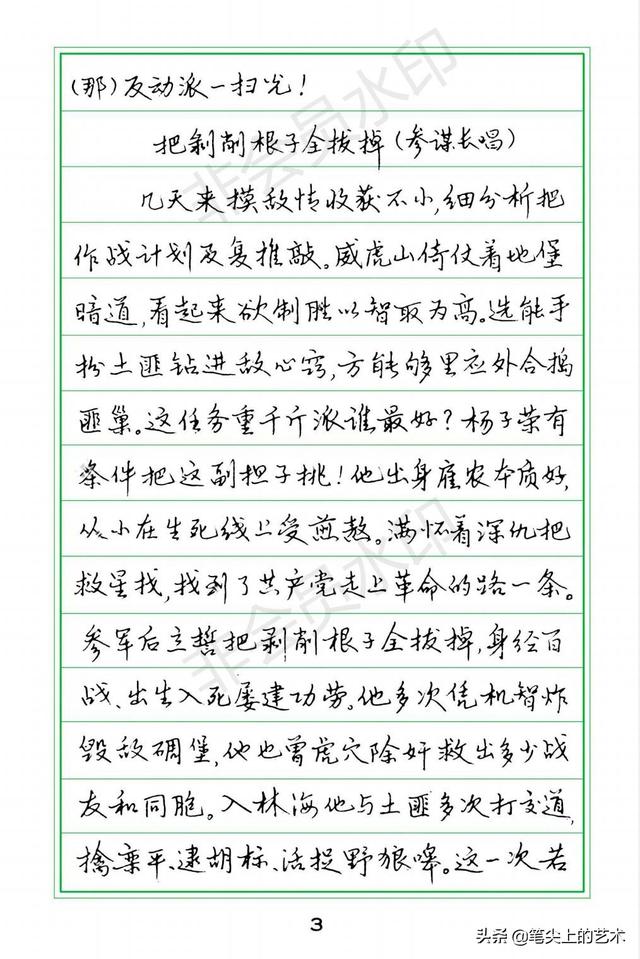 (那)反动派一扫光!
把剥削根子全拔掉(参谋长唱)
几天来摸敌情收获不小,细分析把
作战计划反复推敲。威虎山倚仗着地堡
暗道,看起来欲制胜以智取为高。选能手
扮土匪钻进敌心窍,方能够里应外合捣
匪巢。这任务重千斤派谁最好?杨子荣有
条件把这副担子挑!他出身雇农本质好,
从小在生死线上受煎熬。满怀着深仇把
救星找,找到了共产党走上革命的路一条。
参军后立誓把剥削根子全拔掉,身经百
战、出生入死屡建功劳。他多次凭机智炸
毁敌碉堡,他也曾虎穴除奸救出多少战
友和同胞。入林海他与土匪多次打交道,
擒栾平、逮胡标、活捉野狼嗥。这一次若
3
非会员水印
非会员水印
头条@笔尖上的艺术